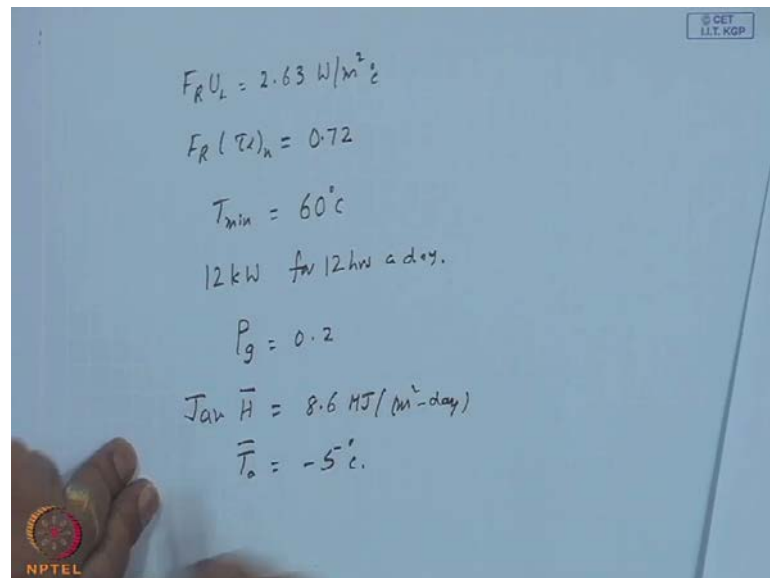 © CET
I.I.T. KGP
F_R U_L = 2.63 W/m² °c
F_R (τα)_n = 0.72
T_min = 60°c
12 kW for 12 hrs a day.
ρ_g = 0.2
Jan H̄ = 8.6 MJ/(m²-day)
T̄_a = -5°c.
NPTEL